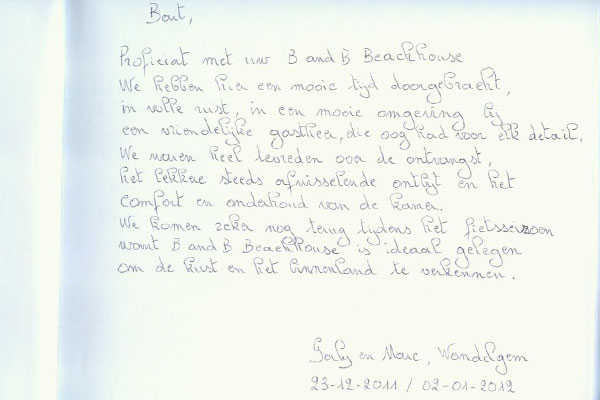 Bart,
Proficiat met uw B and B Beachhouse
We hebben hier een mooie tijd doorgebracht,
in volle rust, in een mooie omgeving bij
een vriendelijke gastheer, die oog had voor elk detail.
We waren heel tevreden over de ontvangst,
het lekkere steeds afwisselende ontbijt en het
comfort en onderhoud van de kamer.
We komen zeker nog terug tijdens het fietsseizoen
want B and B Beachhouse is ideaal gelegen
om de kust en het binnenland te verkennen.
en Marc, Wondelgem
23-12-2011 / 02-01-2012